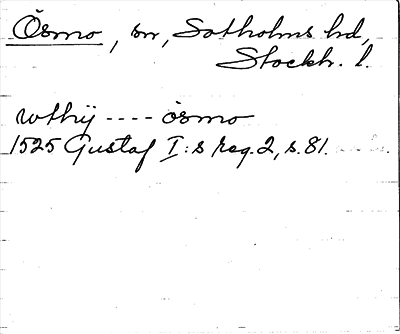 Ösmo, sn, Sotholms hd,
Stockh. l.
wthij ---- ösmo
1525 Gustaf I:s reg. 2, s. 81.